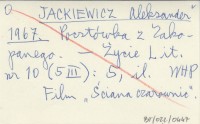 O JACKIEWICZ Aleksander
1967. Pocztówka z Zako-
panego. — Życie Lit.
nr 10 (5 III) : 5, il. WHP
Film „Ściana czarownic".
BF/022/0447